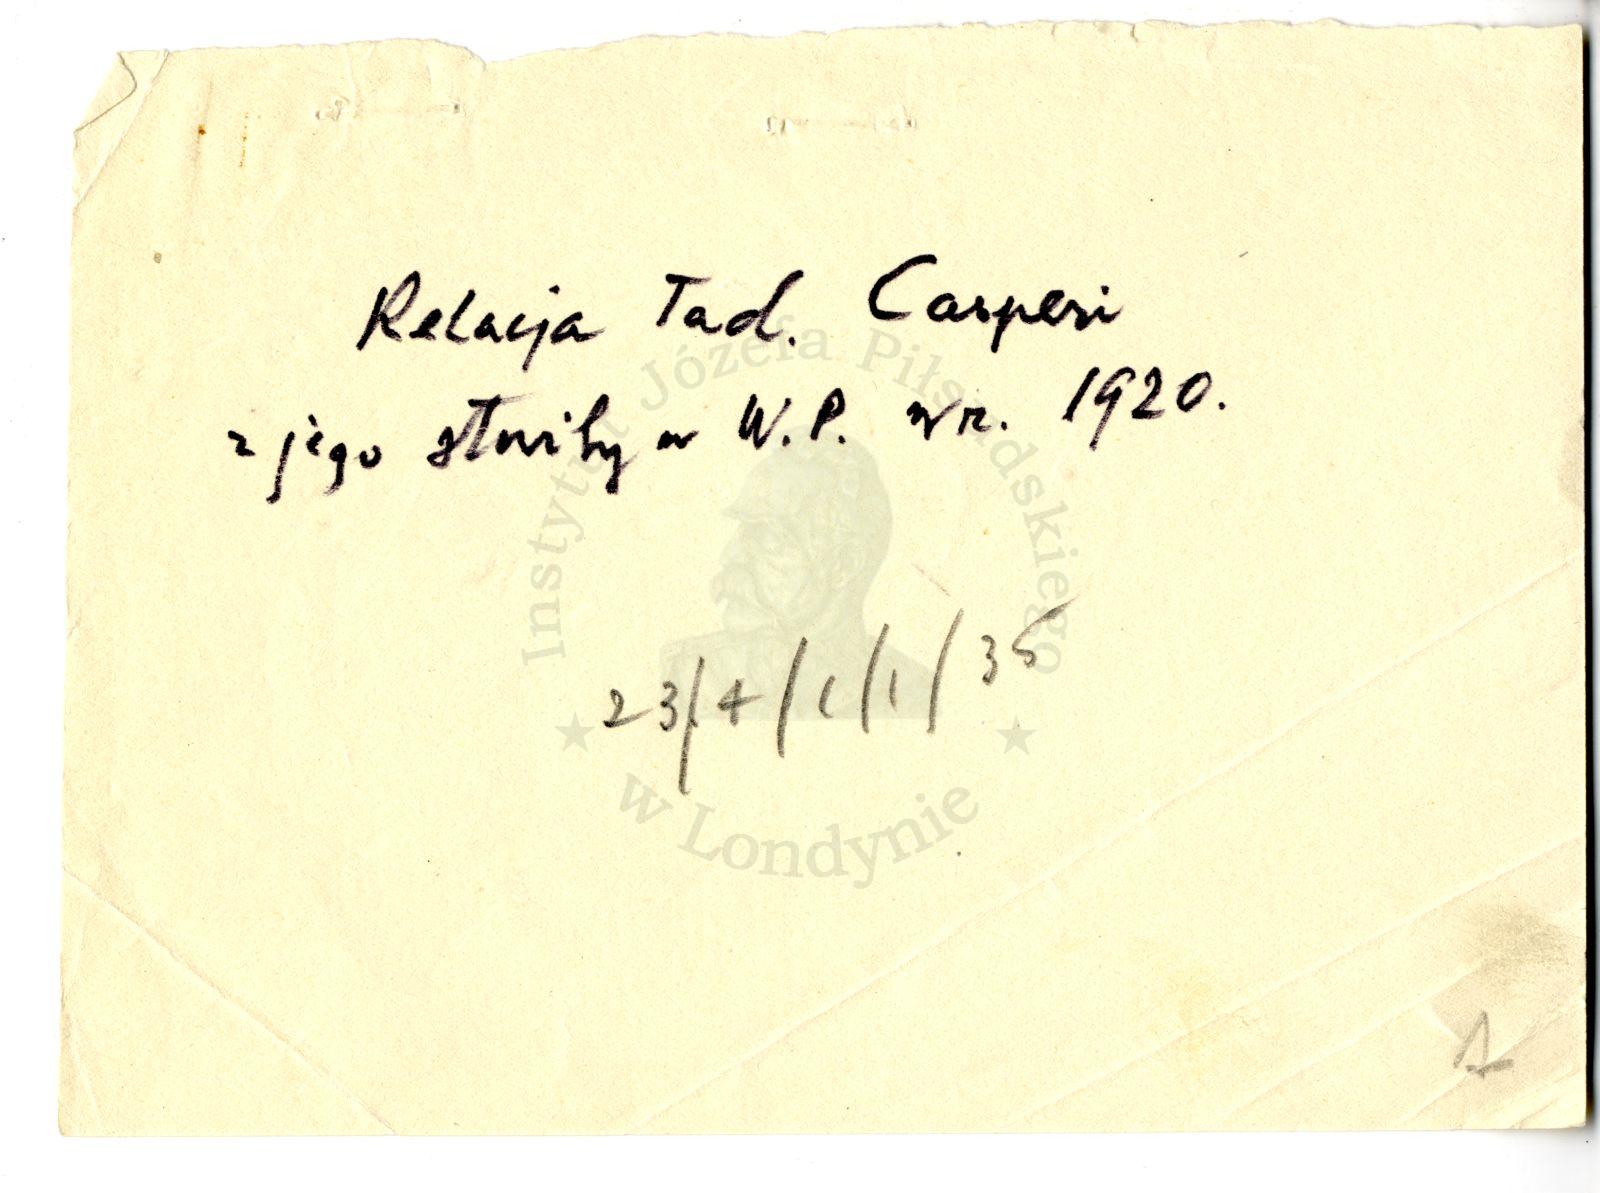 Relacja Tad. Casperi
z jego służby w W.P. w r. 1920.
23/4/1/1/35
1
Instytut Józefa Piłsudskiego
w Londynie